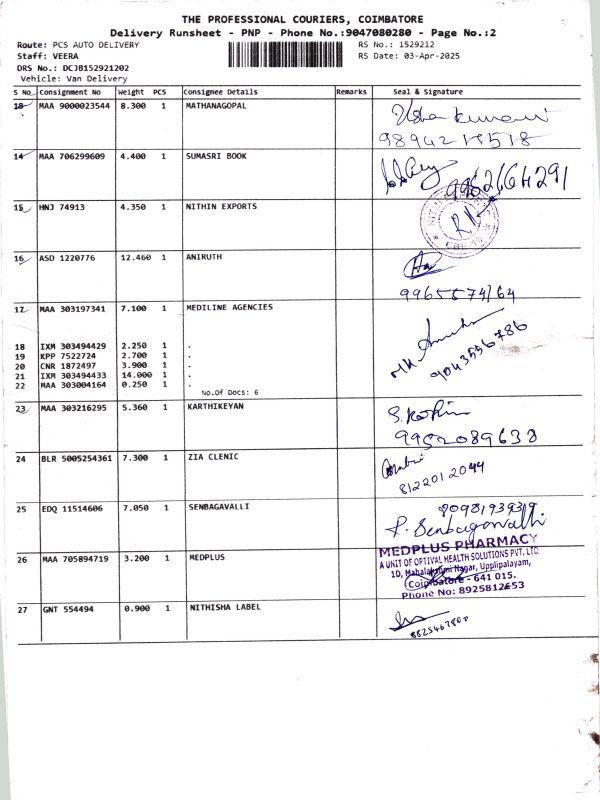 THE PROFESSIONAL COURIERS, COIMBATORE
Delivery Runsheet - PNP - Phone No.:9047080280 - Page No.:2
Route: PCS AUTO DELIVERY RS No.: 1529212
Staff: VEERA RS Date: 03-Apr-2025
DRS No.: DCJB152921202
Vehicle: Van Delivery
S No Consignment No Weight PCS Consignee Details Remarks Seal & Signature
13 MAA 9000023544 8.300 1 MATHANAGOPAL
Usha kumari
14 MAA 706299609 4.400 1 SUMASRI BOOK
9962164291
15 HNJ 74913 4.350 1 NITHIN EXPORTS
16 ASD 1220776 12.460 1 ANIRUTH
9965574164
17 MAA 303197341 7.100 1 MEDILINE AGENCIES
18 IXM 303494429 2.250 1 .
19 KPP 7522724 2.700 1 .
20 CNR 1872497 3.900 1 .
21 IXM 303494433 14.000 1 .
22 MAA 303004164 0.250 1 .
No.Of Docs: 6
9043556786
23 MAA 303216295 5.360 1 KARTHIKEYAN
9952089638
24 BLR 5005254361 7.300 1 ZIA CLENIC
8122012044
25 EDQ 11514606 7.050 1 SENBAGAVALLI
P. Senbagavalli
26 MAA 705894719 3.200 1 MEDPLUS
MEDPLUS PHARMACY
A UNIT OF OPTIVAL HEALTH SOLUTIONS PVT. LTD
1D, Mahalakshmi Nagar, Upplipalayam,
Coimbatore - 641 015.
Phone No: 8925812653
27 GNT 554494 0.900 1 NITHISHA LABEL